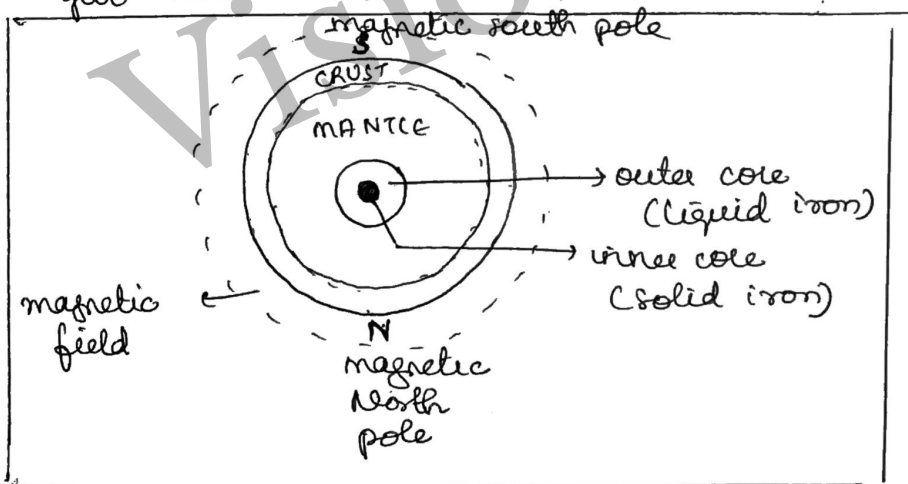 magnetic south pole
S
CRUST
MANTLE
outer core
(liquid iron)
inner core
(solid iron)
magnetic
field
N
magnetic
North
pole
Visio